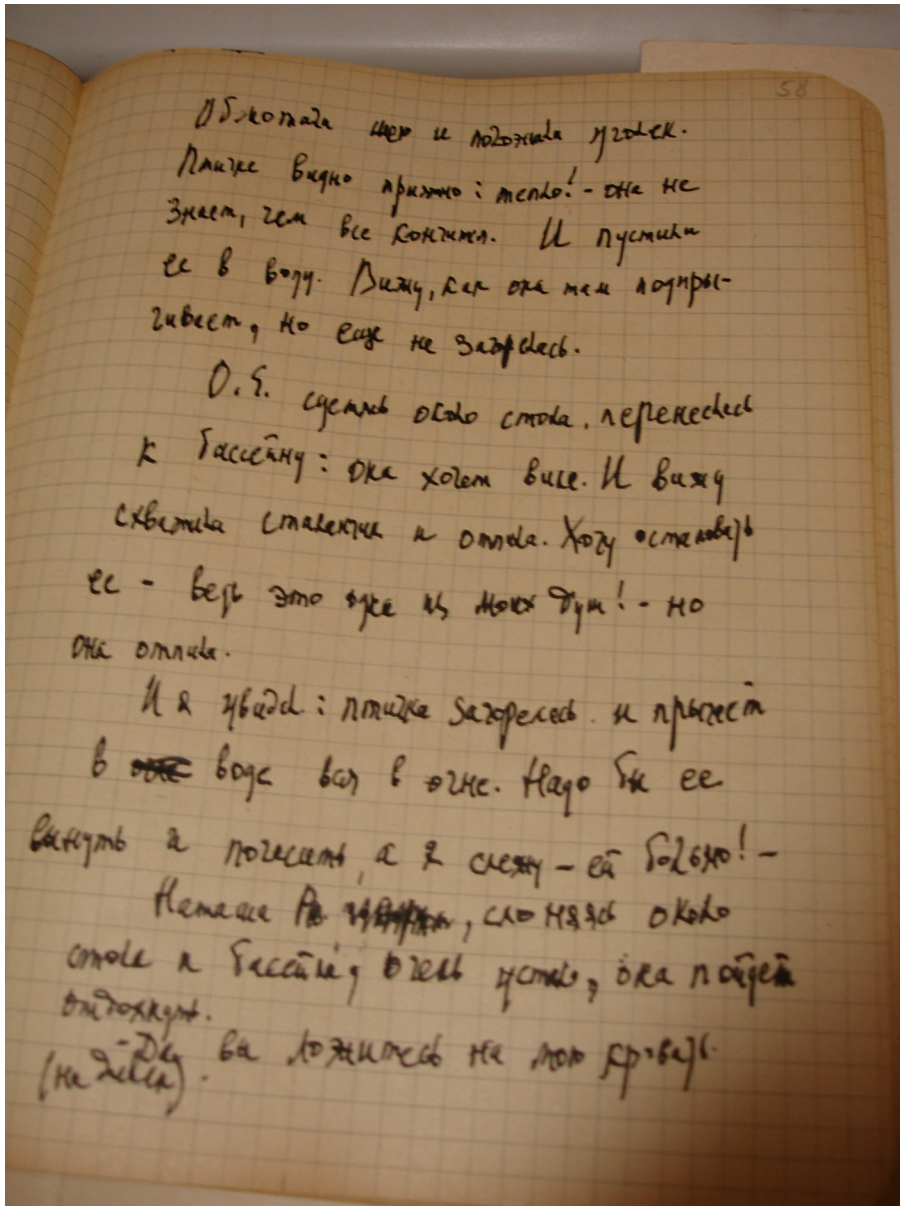 58
Обмотала шею и положила уголек.
Птичке видно приятно: тепло! - она не
знает, чем все кончится. И пустили
ее в воду. Вижу, как она там подпры-
гивает, но еще не загорелась.
О. Е. сделась около стола, перенеслась
к бассейну: она хочет выше. И вижу
схватила сталактит и отпила. Хочу остановить
ее - ведь это одна из моих душ! - но
она отпила.
И я увидел: птичка загорелась и прыгает
в воде вся в огне. Надо бы ее
вынуть и погасить, а я слежу - ей больно! -
Наташа, слоняясь около
стола и бассейна, очень устала, она пойдет
отдохнуть.
- Да вы ложитесь на мою кровать.
(на диван).